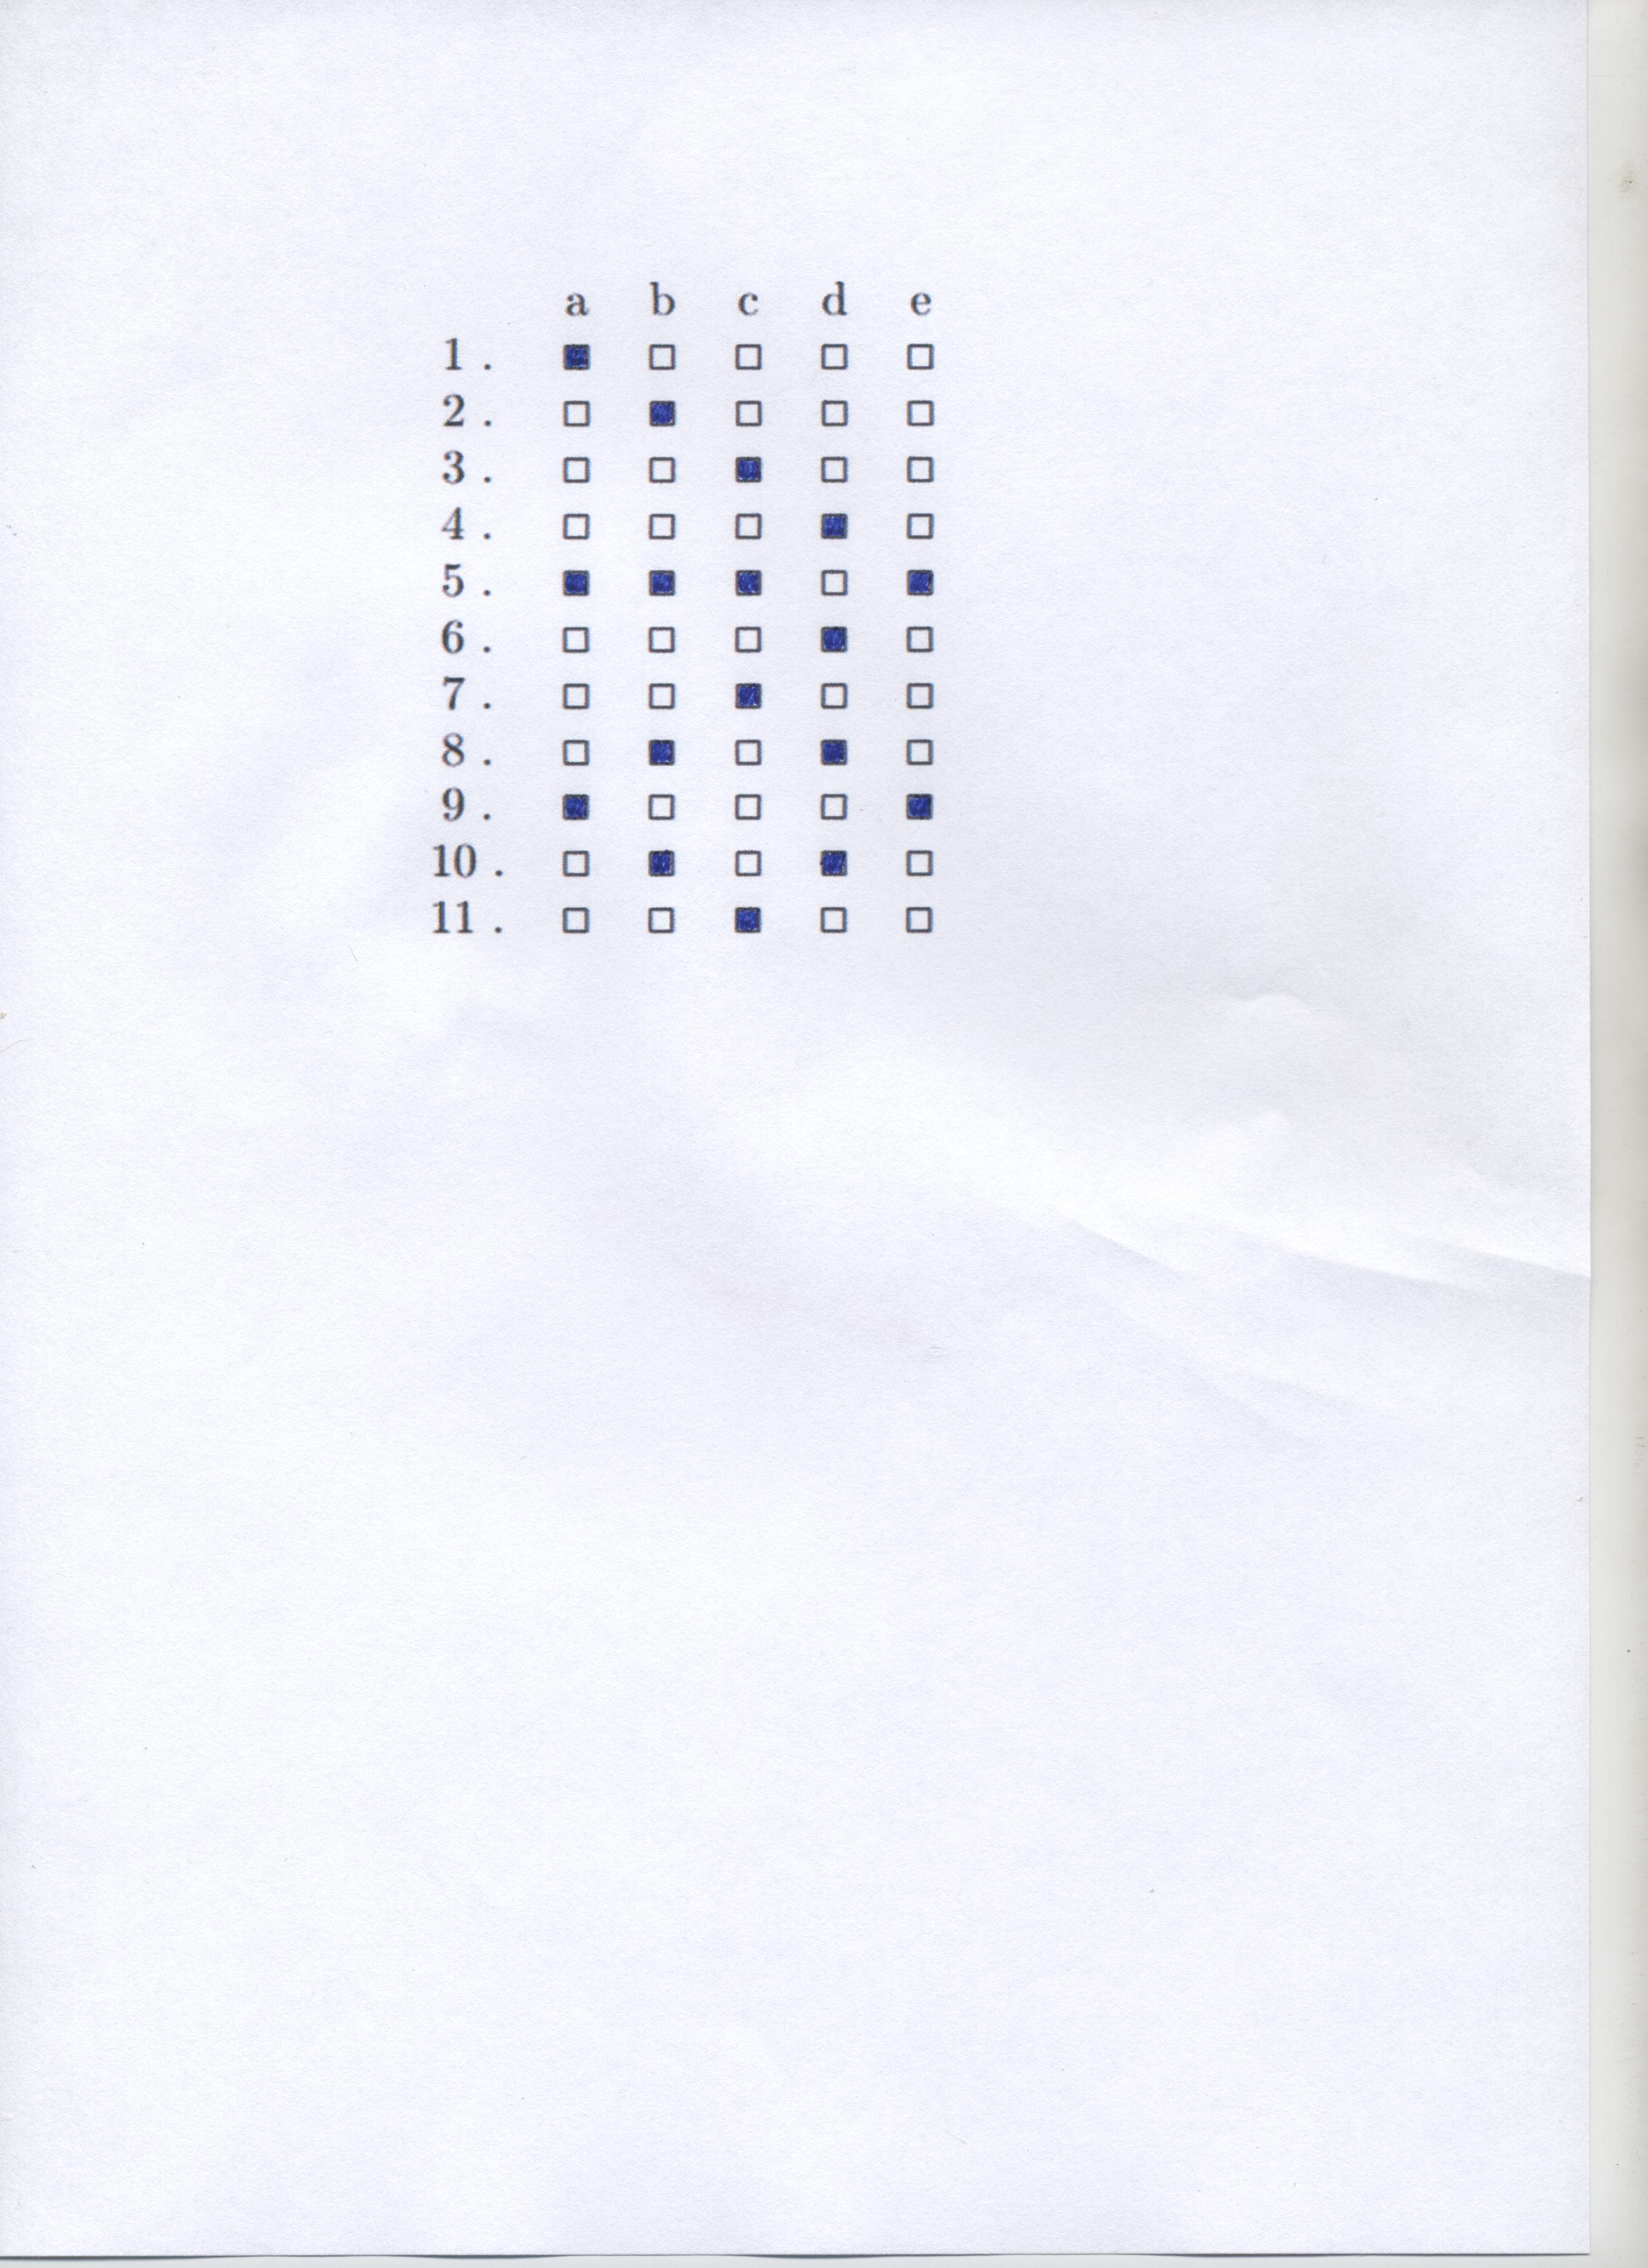 a b c d e
1 . ■ □ □ □ □
2 . □ ■ □ □ □
3 . □ □ ■ □ □
4 . □ □ □ ■ □
5 . ■ ■ ■ □ ■
6 . □ □ □ ■ □
7 . □ □ ■ □ □
8 . □ ■ □ ■ □
9 . ■ □ □ □ ■
10 . □ ■ □ ■ □
11 . □ □ ■ □ □